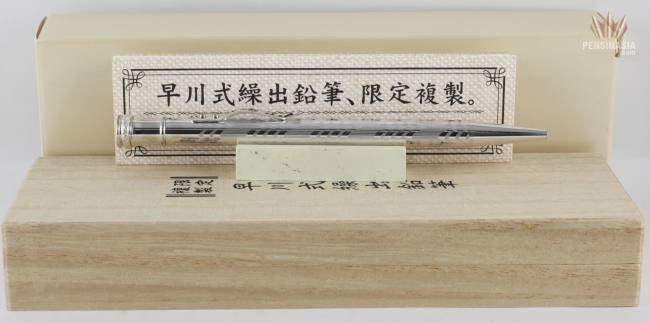 PENSINASIA
.com
早川式繰出鉛筆、限定複製。
限定
複製
早川式繰出鉛筆